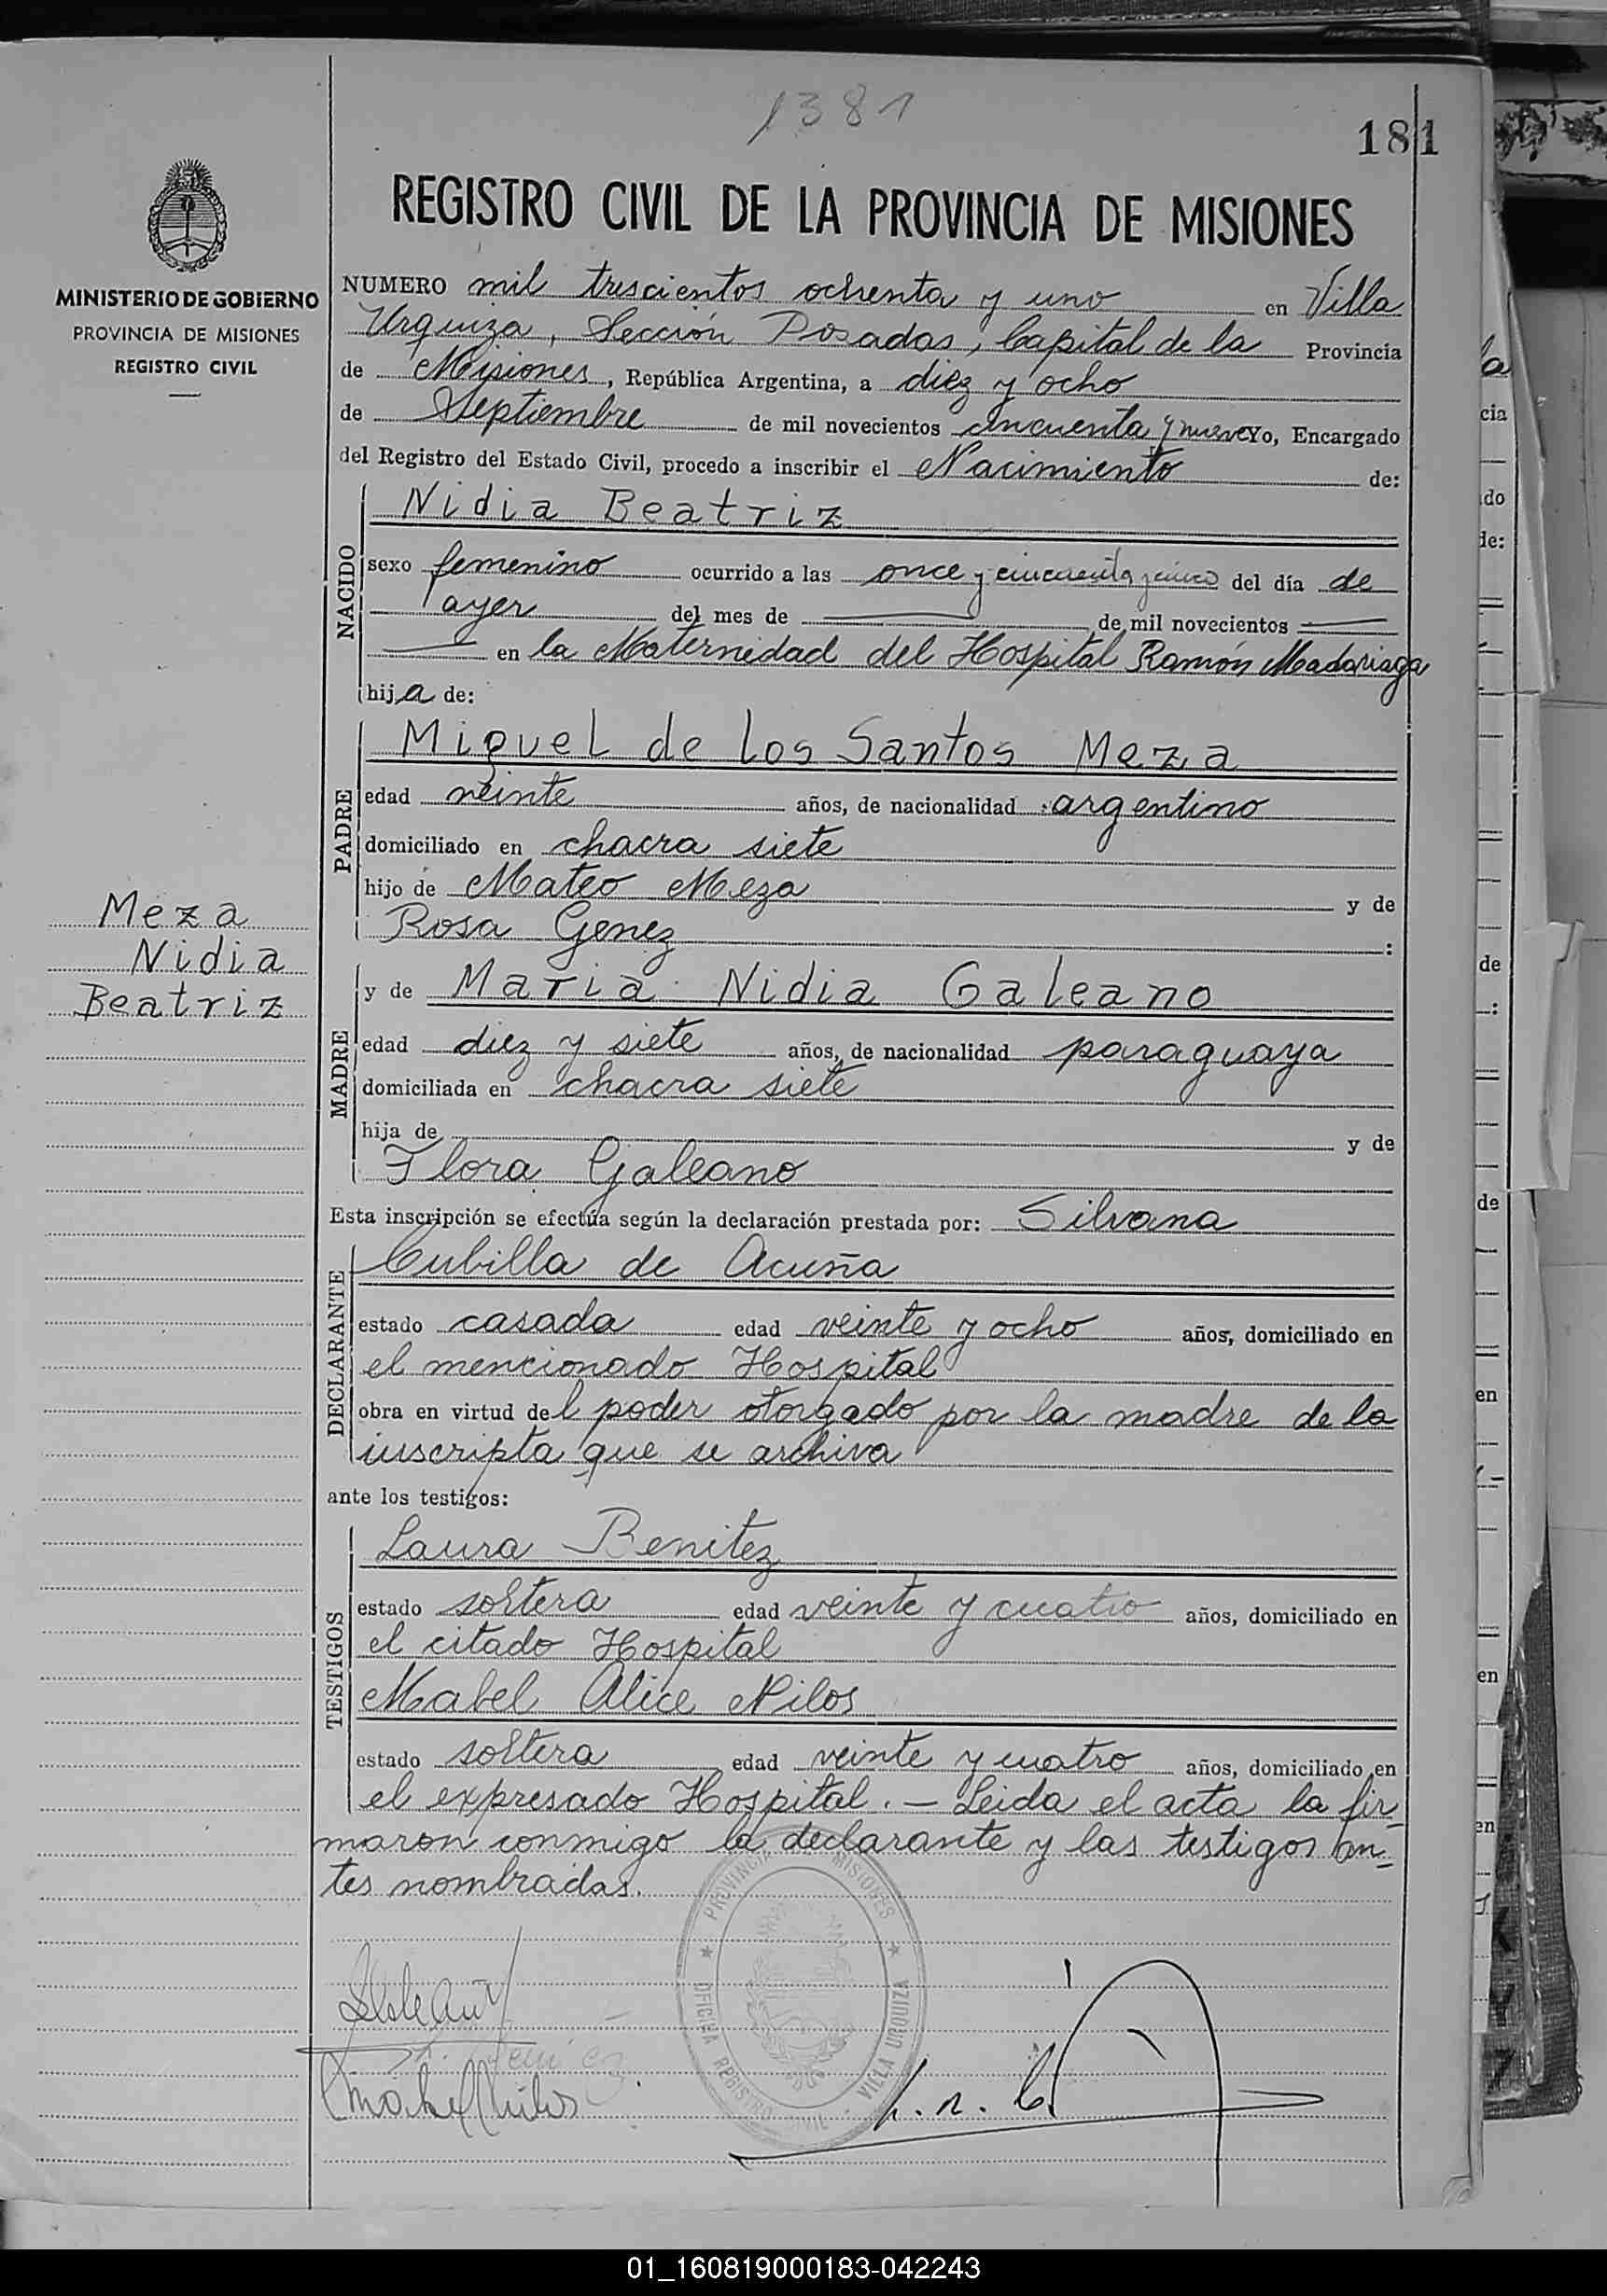 1381
181
REGISTRO CIVIL DE LA PROVINCIA DE MISIONES
MINISTERIO DE GOBIERNO
PROVINCIA DE MISIONES
REGISTRO CIVIL
NUMERO mil trescientos ochenta y uno en Villa
Urquiza, Sección Posadas, Capital de la Provincia
de Misiones, República Argentina, a diez y ocho
de Septiembre de mil novecientos cincuenta y nueve Yo, Encargado
del Registro del Estado Civil, procedo a inscribir el Nacimiento de:
NACIDO
Nidia Beatriz
sexo femenino ocurrido a las once y cincuenta y cinco del día de
ayer del mes de de mil novecientos
en la Maternidad del Hospital Ramón Madariaga
hija de:
PADRE
Miguel de los Santos Meza
edad veinte años, de nacionalidad argentino
domiciliado en chacra siete
hijo de Mateo Meza y de
Rosa Genez :
Meza
Nidia
Beatriz
MADRE
y de Maria Nidia Galeano
edad diez y siete años, de nacionalidad paraguaya
domiciliada en chacra siete
hija de y de
Flora Galeano
Esta inscripción se efectúa según la declaración prestada por: Silvana
DECLARANTE
Cubilla de Acuña
estado casada edad veinte y ocho años, domiciliado en
el mencionado Hospital
obra en virtud del poder otorgado por la madre de la
inscripta que se archiva
ante los testigos:
TESTIGOS
Laura Benitez
estado soltera edad veinte y cuatro años, domiciliado en
el citado Hospital
Mabel Alice Nilos
estado soltera edad veinte y cuatro años, domiciliado en
el expresado Hospital. — Leida el acta la fir_
maron conmigo la declarante y las testigos an_
tes nombradas.
PROVINCIA MISIONES
OFICINA REGISTRO CIVIL - VILLA URQUIZA
01_160819000183-042243